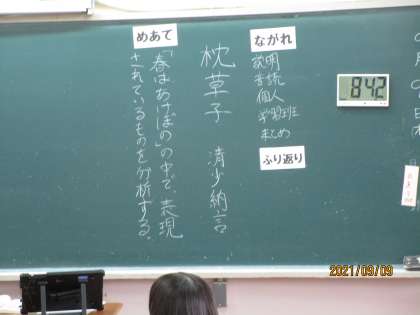 ながれ
説明
音読
個人
学習班
まとめ
ふり返り
枕草子 清少納言
めあて
「春はあけぼの」の中で、表現
されているものを分析する。
8:42
2021/09/09